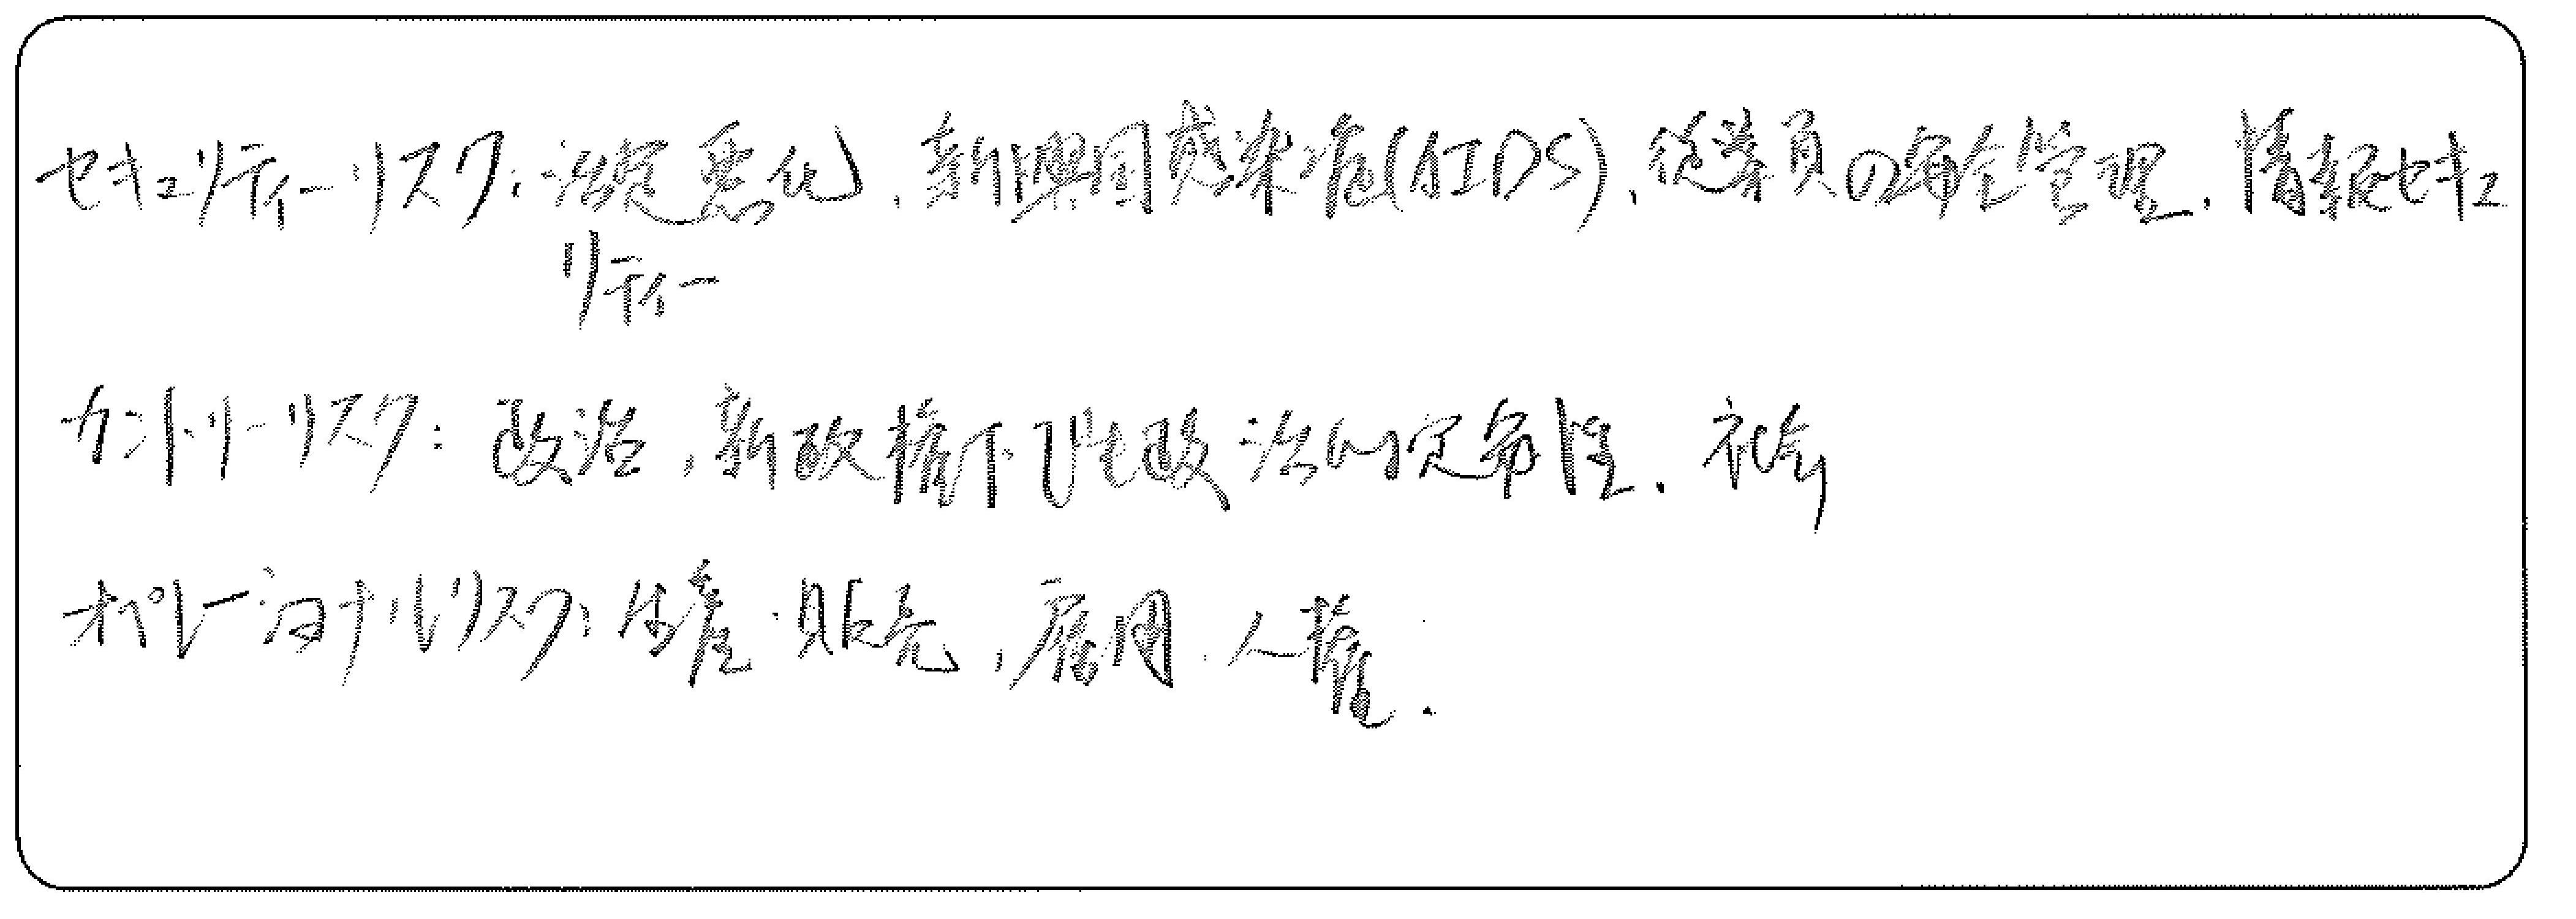 セキュリティーリスク:治安悪化、新興国感染症(AIDS)、従業員の安全管理、情報セキュ
リティー
カントリーリスク:政治、新政権下での政治的安定性、社会
オペレーショナルリスク:生産・販売、雇用、人権.